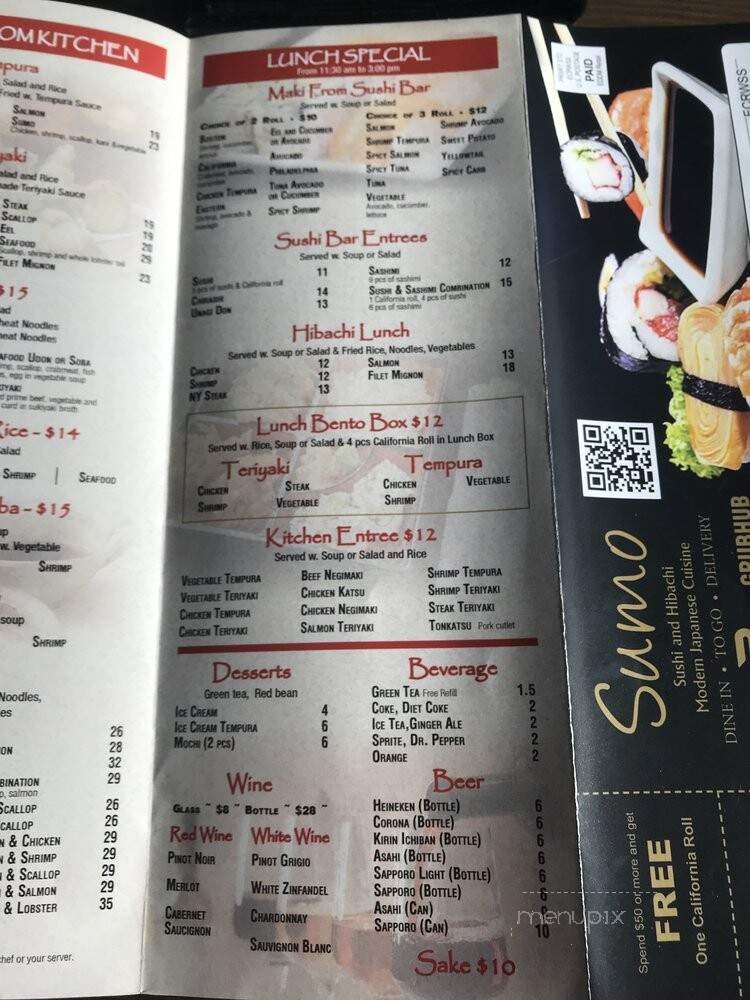 OM KITCHEN
mpura
Salad and Rice
Fried w. Tempura Sauce
SALMON
SUMO 19
Chicken, shrimp, scallop, kani &vegetable 23
yaki
alad and Rice
ade Teriyaki Sauce
STEAK 19
SCALLOP 19
EEL 20
SEAFOOD 29
Scallop, shrimp and whole lobster tail
FILET MIGNON 23
$15
ad
heat Noodles
eat Noodles
AFOOD UDON OR SOBA
mp, scallop, crabmeat, fish
s, egg in vegetable soup
IYAKI
d prime beef, vegetable and
curd in sukiyaki broth
Rice - $14
alad
SHRIMP | SEAFOOD
ba - $15
up
w. Vegetable
SHRIMP
soup
SHRIMP
Noodles,
es
26
ON 28
32
BINATION 29
p, salmon
SCALLOP 26
CALLOP 26
N & CHICKEN 29
N & SHRIMP 29
N & SCALLOP 29
& SALMON 29
& LOBSTER 35
chef or your server.
LUNCH SPECIAL
From 11:30 am to 3:00 pm
Maki From Sushi Bar
Served w. Soup or Salad
CHOICE OF 2 ROLL - $10
BOSTON
CALIFORNIA
CHICKEN TEMPURA
EASTERN
Shrimp, avocado &
EEL AND CUCUMBER
OR AVOCADO
AVOCADO
PHILADELPHIA
TUNA AVOCADO
OR CUCUMBER
SPICY SHRIMP
CHOICE OF 3 ROLL - $12
SALMON
SHRIMP TEMPURA
SPICY SALMON
SPICY TUNA
TUNA
VEGETABLE
Avocado, cucumber,
lettuce
SHRIMP AVOCADO
SWEET POTATO
YELLOWTAIL
SPICY CRAB
Sushi Bar Entrees
Served w. Soup or Salad
SUSHI 11
5 pcs of sushi & California roll
CHIRASHI 14
UNAGI DON 13
SASHIMI 12
9 pcs of sashimi
SUSHI & SASHIMI COMBINATION 15
1 California roll, 4 pcs of sushi
6 pcs of sashimi
Hibachi Lunch
Served w. Soup or Salad & Fried Rice, Noodles, Vegetables
CHICKEN 12
SHRIMP 12
NY STEAK 13
SALMON 13
FILET MIGNON 18
Lunch Bento Box $12
Served w. Rice, Soup or Salad & 4 pcs California Roll in Lunch Box
Teriyaki
CHICKEN STEAK
SHRIMP VEGETABLE
Tempura
CHICKEN VEGETABLE
SHRIMP
Kitchen Entree $12
Served w. Soup or Salad and Rice
VEGETABLE TEMPURA BEEF NEGIMAKI SHRIMP TEMPURA
VEGETABLE TERIYAKI CHICKEN KATSU SHRIMP TERIYAKI
CHICKEN TEMPURA CHICKEN NEGIMAKI STEAK TERIYAKI
CHICKEN TERIYAKI SALMON TERIYAKI TONKATSU Pork cutlet
Desserts
Green tea, Red bean
ICE CREAM 4
ICE CREAM TEMPURA 6
MOCHI (2 PCS) 6
Beverage
GREEN TEA Free Refill 1.5
COKE, DIET COKE 2
ICE TEA, GINGER ALE 2
SPRITE, DR. PEPPER 2
ORANGE 2
Wine
GLASS ~ $8 ~ BOTTLE ~ $28 ~
Red Wine
PINOT NOIR
MERLOT
CABERNET
SAUCIGNON
White Wine
PINOT GRIGIO
WHITE ZINFANDEL
CHARDONNAY
SAUVIGNON BLANC
Beer
HEINEKEN (BOTTLE) 6
CORONA (BOTTLE) 6
KIRIN ICHIBAN (BOTTLE) 6
ASAHI (BOTTLE) 6
SAPPORO LIGHT (BOTTLE) 6
SAPPORO (BOTTLE) 6
ASAHI (CAN) 8
SAPPORO (CAN) 10
Sake $10
PRSRT STD
ECRWSS
U.S. POSTAGE
PAID
EDDM Retail
ECRWSS
Sumo
Sushi and Hibachi
Modern Japanese Cuisine
DINE IN • TO GO • DELIVERY
GRUBHUB
Spend $50 or more and get
FREE
One California Roll
menupix